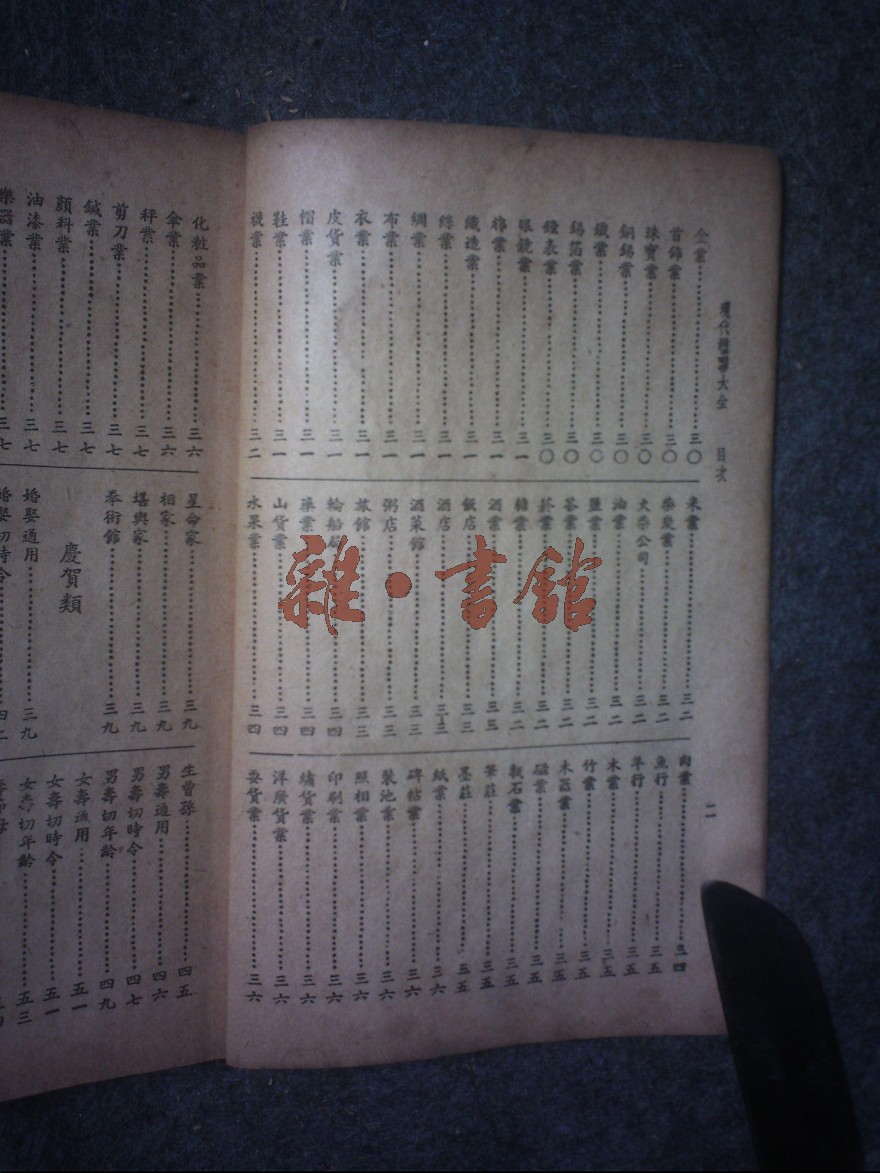 現代楹聯大全 目次
二
金業 三〇
首飾業 三〇
珠寶業 三〇
銅錫業 三〇
鐵業 三〇
錫箔業 三〇
鐘表業 三〇
眼鏡業 三一
棉業 三一
織造業 三一
絲業 三一
綢業 三一
布業 三一
衣業 三一
皮貨業 三一
帽業 三一
鞋業 三一
襪業 三二
米業 三二
柴炭業 三二
火柴公司 三二
油業 三二
鹽業 三二
茶業 三二
菸業 三二
糖業 三二
酒業 三三
飯店 三三
酒店 三三
酒菜館 三三
粥店 三三
旅館 三三
輪船 三四
藥業 三四
山貨業 三四
水果業 三四
肉業 三四
魚行 三五
羊行 三五
木業 三五
竹業 三五
木器業 三五
磁業 三五
石業 三五
筆莊 三五
墨莊 三五
紙業 三六
碑帖業 三六
裝池業 三六
照相業 三六
印刷業 三六
繡貨業 三六
洋廣貨業 三六
雜貨業 三六
化粧品業 三六
傘業 三六
秤業 三七
剪刀業 三七
鍼業 三七
顏料業 三七
油漆業 三七
樂器業 三七
星命家 三九
相家 三九
堪輿家 三九
拳術館 三九
慶賀類
婚娶通用 三九
婚娶切時令 四二
生曾孫 四五
男壽通用 四六
男壽切時令 四七
男壽切年齡 四九
女壽通用 五一
女壽切時令 五一
女壽切年齡 五三
雜·書館